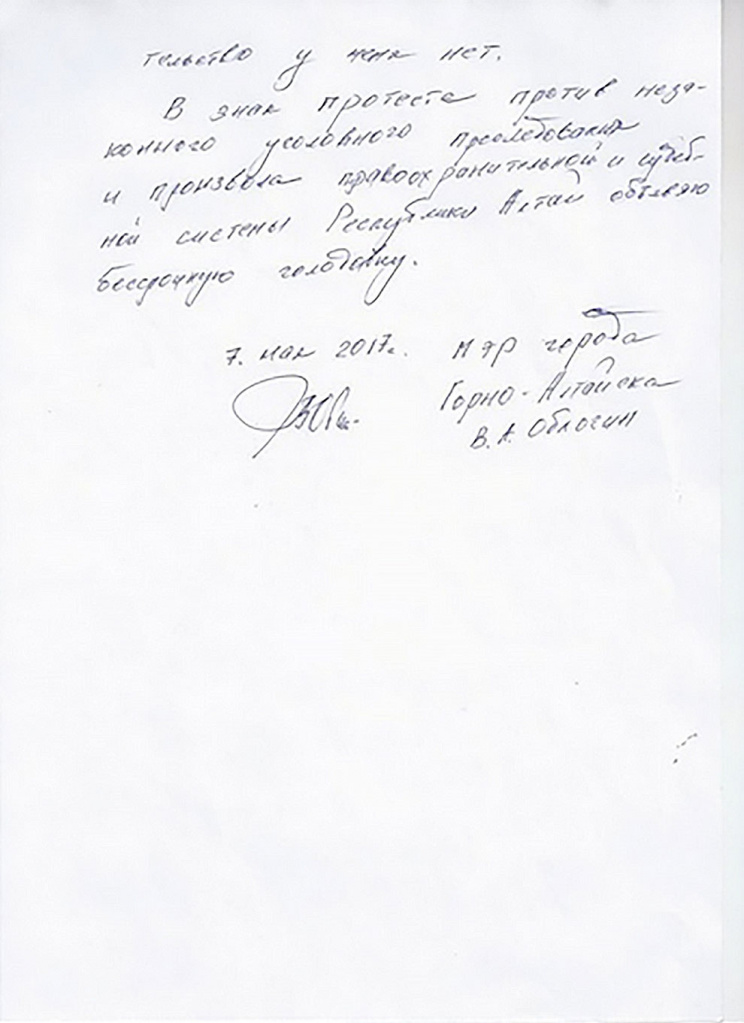 тельство у меня нет.
В знак протеста против неза-
конного уголовного преследования
и произвола правоохранительной и судеб-
ной системы Республики Алтай объявляю
бессрочную голодовку.
7. мая 2017г. Мэр города
Горно-Алтайска
В.А. Облогин